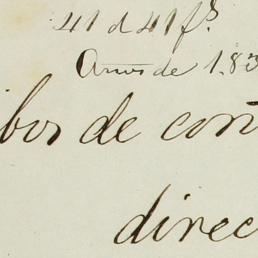 41 d 41 fs.
Años de 183
bos de con
direc